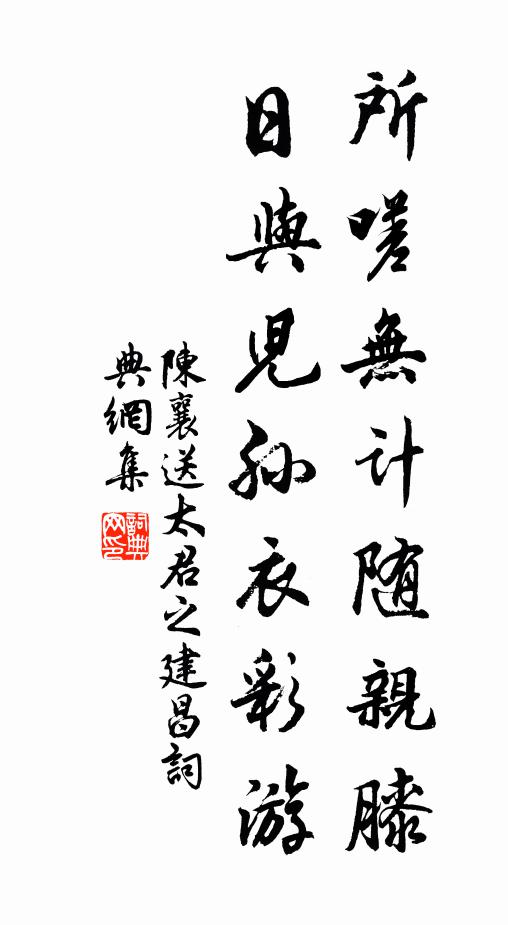 所嗟無计随親膝
日與児孙衣彩游
陳襄送太君之建昌詞
典網集
詞典
网印